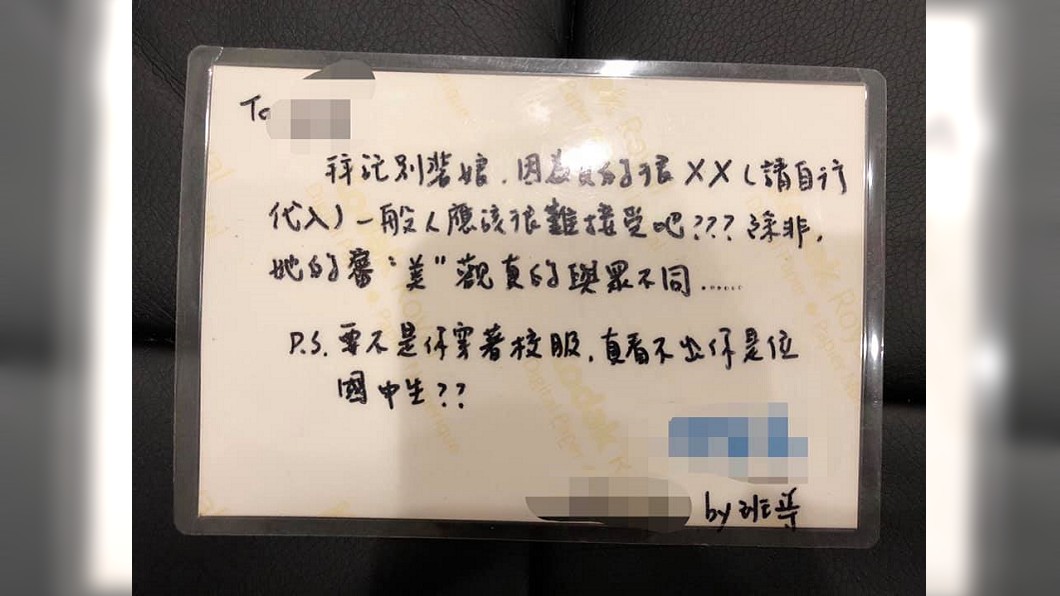 To
拜託別裝娘，因為真的很XX（請自行
代入）一般人應該很難接受吧???除非，
她的審"美"觀真的與眾不同......
P.S. 要不是你穿著校服，真看不出你是位
國中生??
by 班導